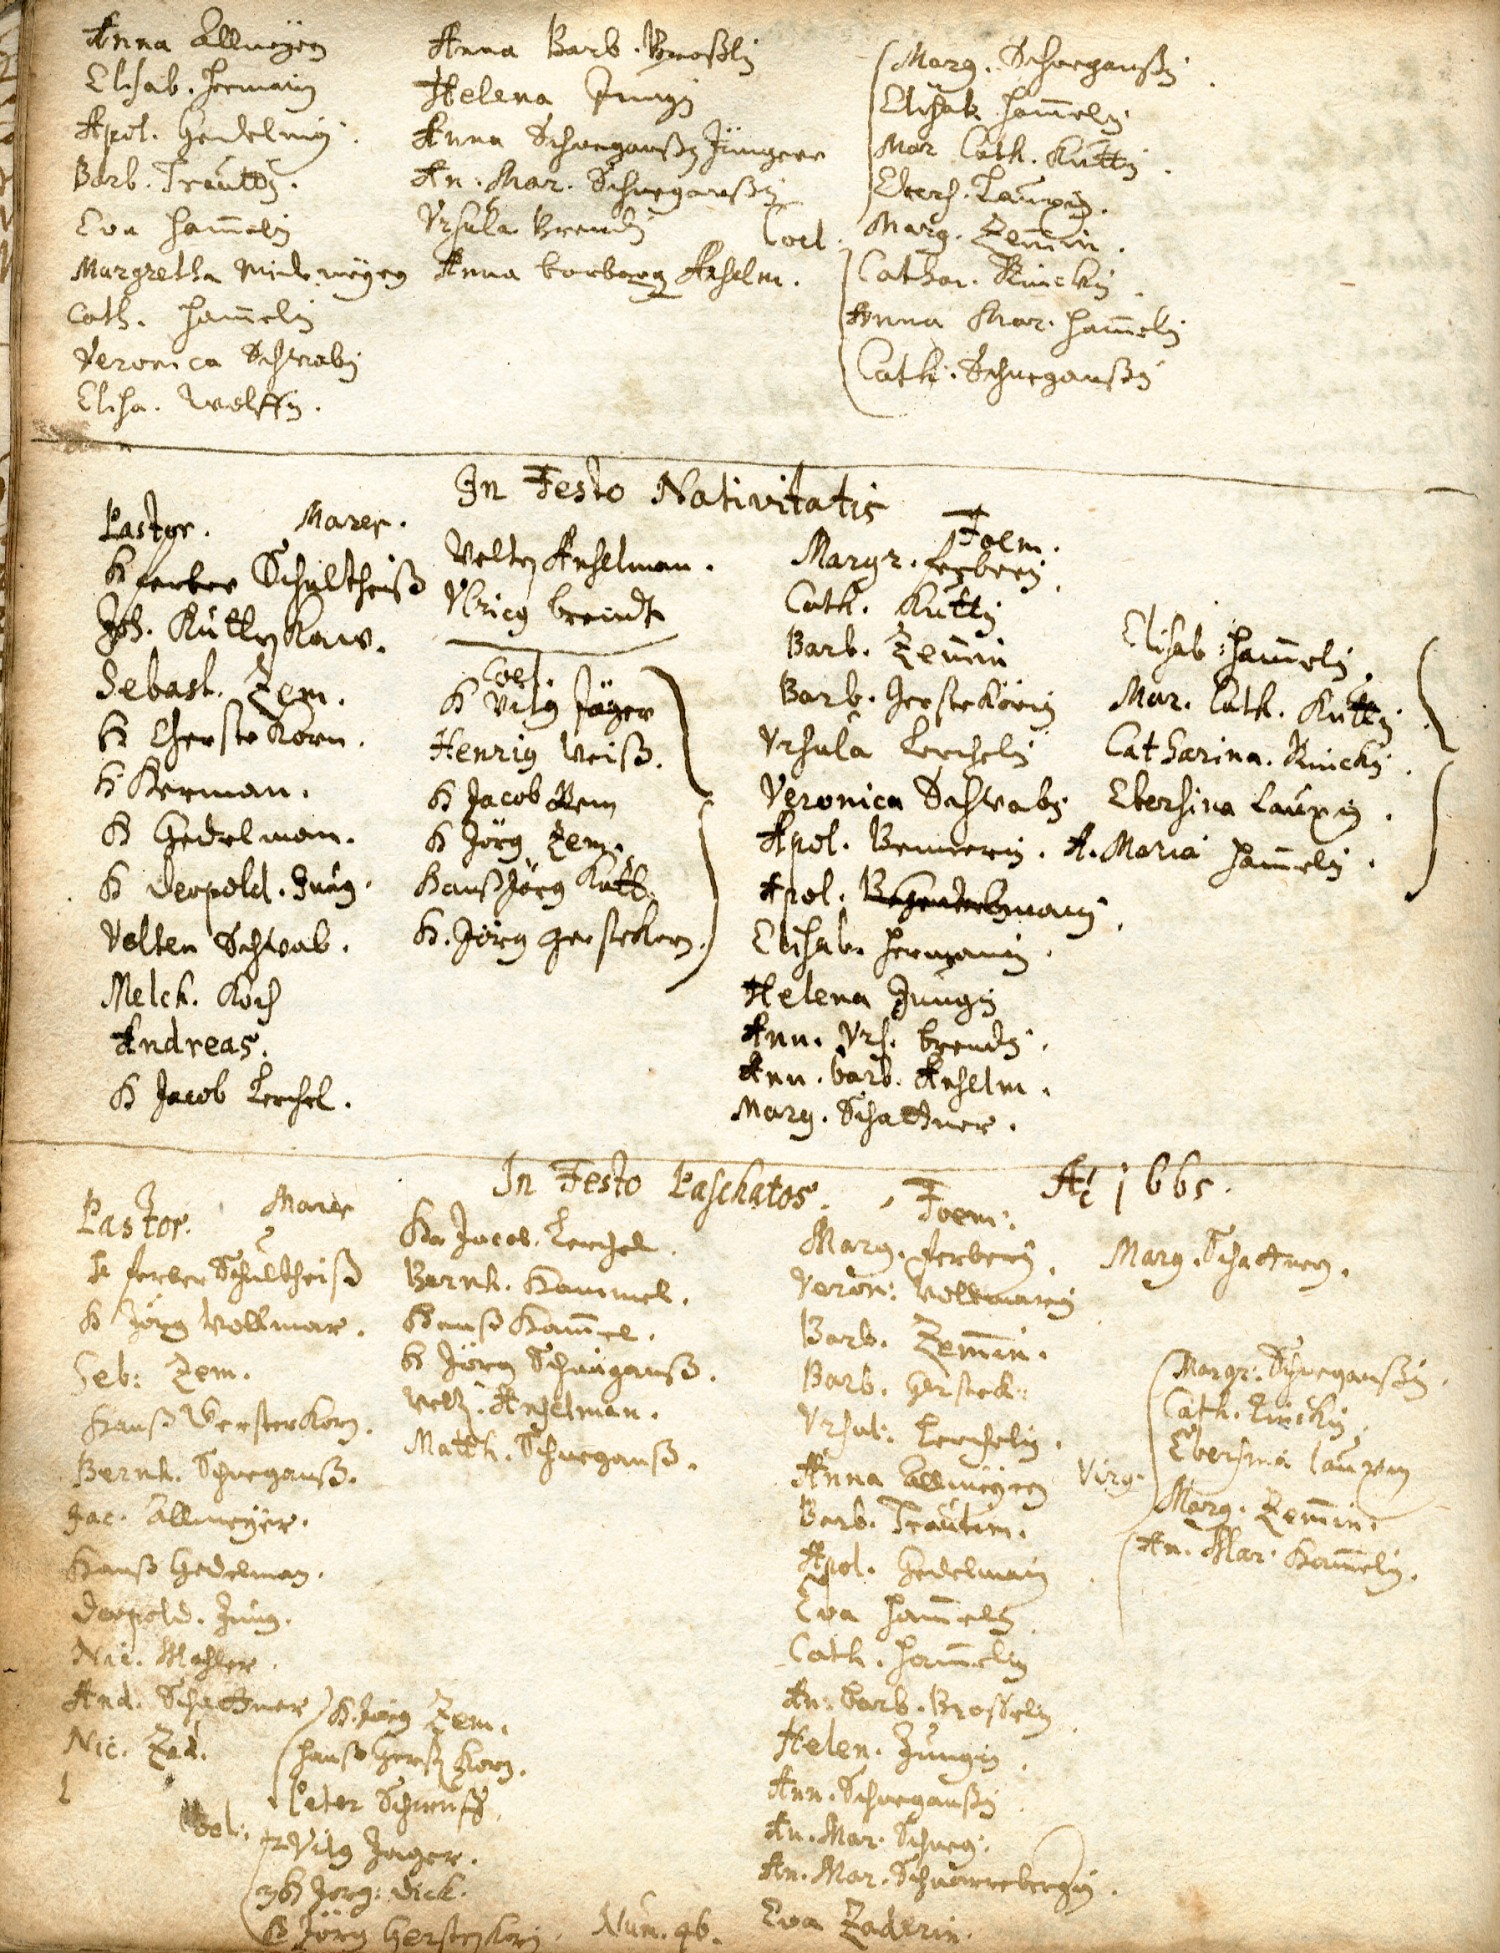 Anna Allmeÿerin
Elisab. Hermanin
Apol. Hedelmenin
Barb. Trauttin.
Eva Ham̄elin
Margretha
Cath. Ham̄elin
Veronica Schwabin
Elisa. Wolffin.
Anna Barb. Broßlin
Helena Jungin
Anna Schwegaußin Jüngere
An. Mar. Schwegaußin
Vrsula Brendin
Anna barbara Anselm.
Coel.
Marg. Schwegaußin
Elisab. Ham̄elin
Mar Cath. Kuttin
Ebers. Lauxin.
Marg. Zem̄in.
Cathar. Rinckin
Anna Mar. Ham̄elin
Cath. Schwegaußin
In Festo Nativitatis
Pastor. Mares.
H ferber Schultheiß
Joh. Kutty
Sebast. Zem.
H Gerstekorn.
H Herman.
H Hedelman.
H Deopold. Jung.
Velten Schwab.
Melch. Koch
Andreas.
H Jacob Lerchel.
Velty Anselman.
Vlrich brendt
Coel.
H Veitg Jäger
Henrig Weiß.
H Jacob Rem
H Jörg Zem.
Hanß Jörg Kutt.
H. Jörg Gerstekorn.
Foem.
Margr. ferberin
Cath. Kuttin
Barb. Zem̄in
Barb. Gerstekorin
Vrsula Lerchelin
Veronica Schwabin
Apol. Bennerin.
Apol.
Elisab. Hermanin
Helena Jungin
Ann. Vrs. brendin.
Ann. barb. Anselm.
Marg. Schattner.
Elisab: Ham̄elin
Mar. Cath. Kuttin
Catharina. Rinckin
Ebersina Lauxin.
A. Maria Ham̄elin.
In Festo Paschatos. Aō 1665.
Pastor. Mares
H ferber Schultheiß
H Jörg Vollmar.
Seb: Zem.
Hanß Gersterkorn.
Bernh. Schwegauß.
Jac. Allmeÿer.
Hanß Hedelman.
Deopold. Jung.
Nic. Mahler.
And. Schattner
Nic. Zad.
Hn Jacob. Lerchel.
Bernh. Hammel.
Hanß Ham̄el.
H Jörg Schwegauß.
Veltin. Anselman.
Matth. Schwegauß.
Coel:
H. Jörg Zem.
Hanß Gerstekorn.
Peter
Veitg Jager.
H Jorg: Dick.
H Jörg Gerstekorn.
Num. 46.
Foem:
Marg. ferberin.
Veron: Vollmarin
Barb. Zem̄in.
Barb. Gersteck:
Vrsul: Lerchelin.
Anna Allmeÿerin
Barb. Trautin.
Apol. Hedelmanin
Eva Ham̄elin
Cath. Ham̄elin
An: barb. Brosselin
Helen. Jungin
Ann. Schwegaußin
An. Mar. Schweg:
An. Mar. Schwarrebergin.
Eva Zaderin.
Marg. Schattnerin.
Virg.
Margr: Schwegaußin
Cath. Rinckin
Ebersina Lauxin
Marg. Zem̄in.
An. Mar. Ham̄elin.